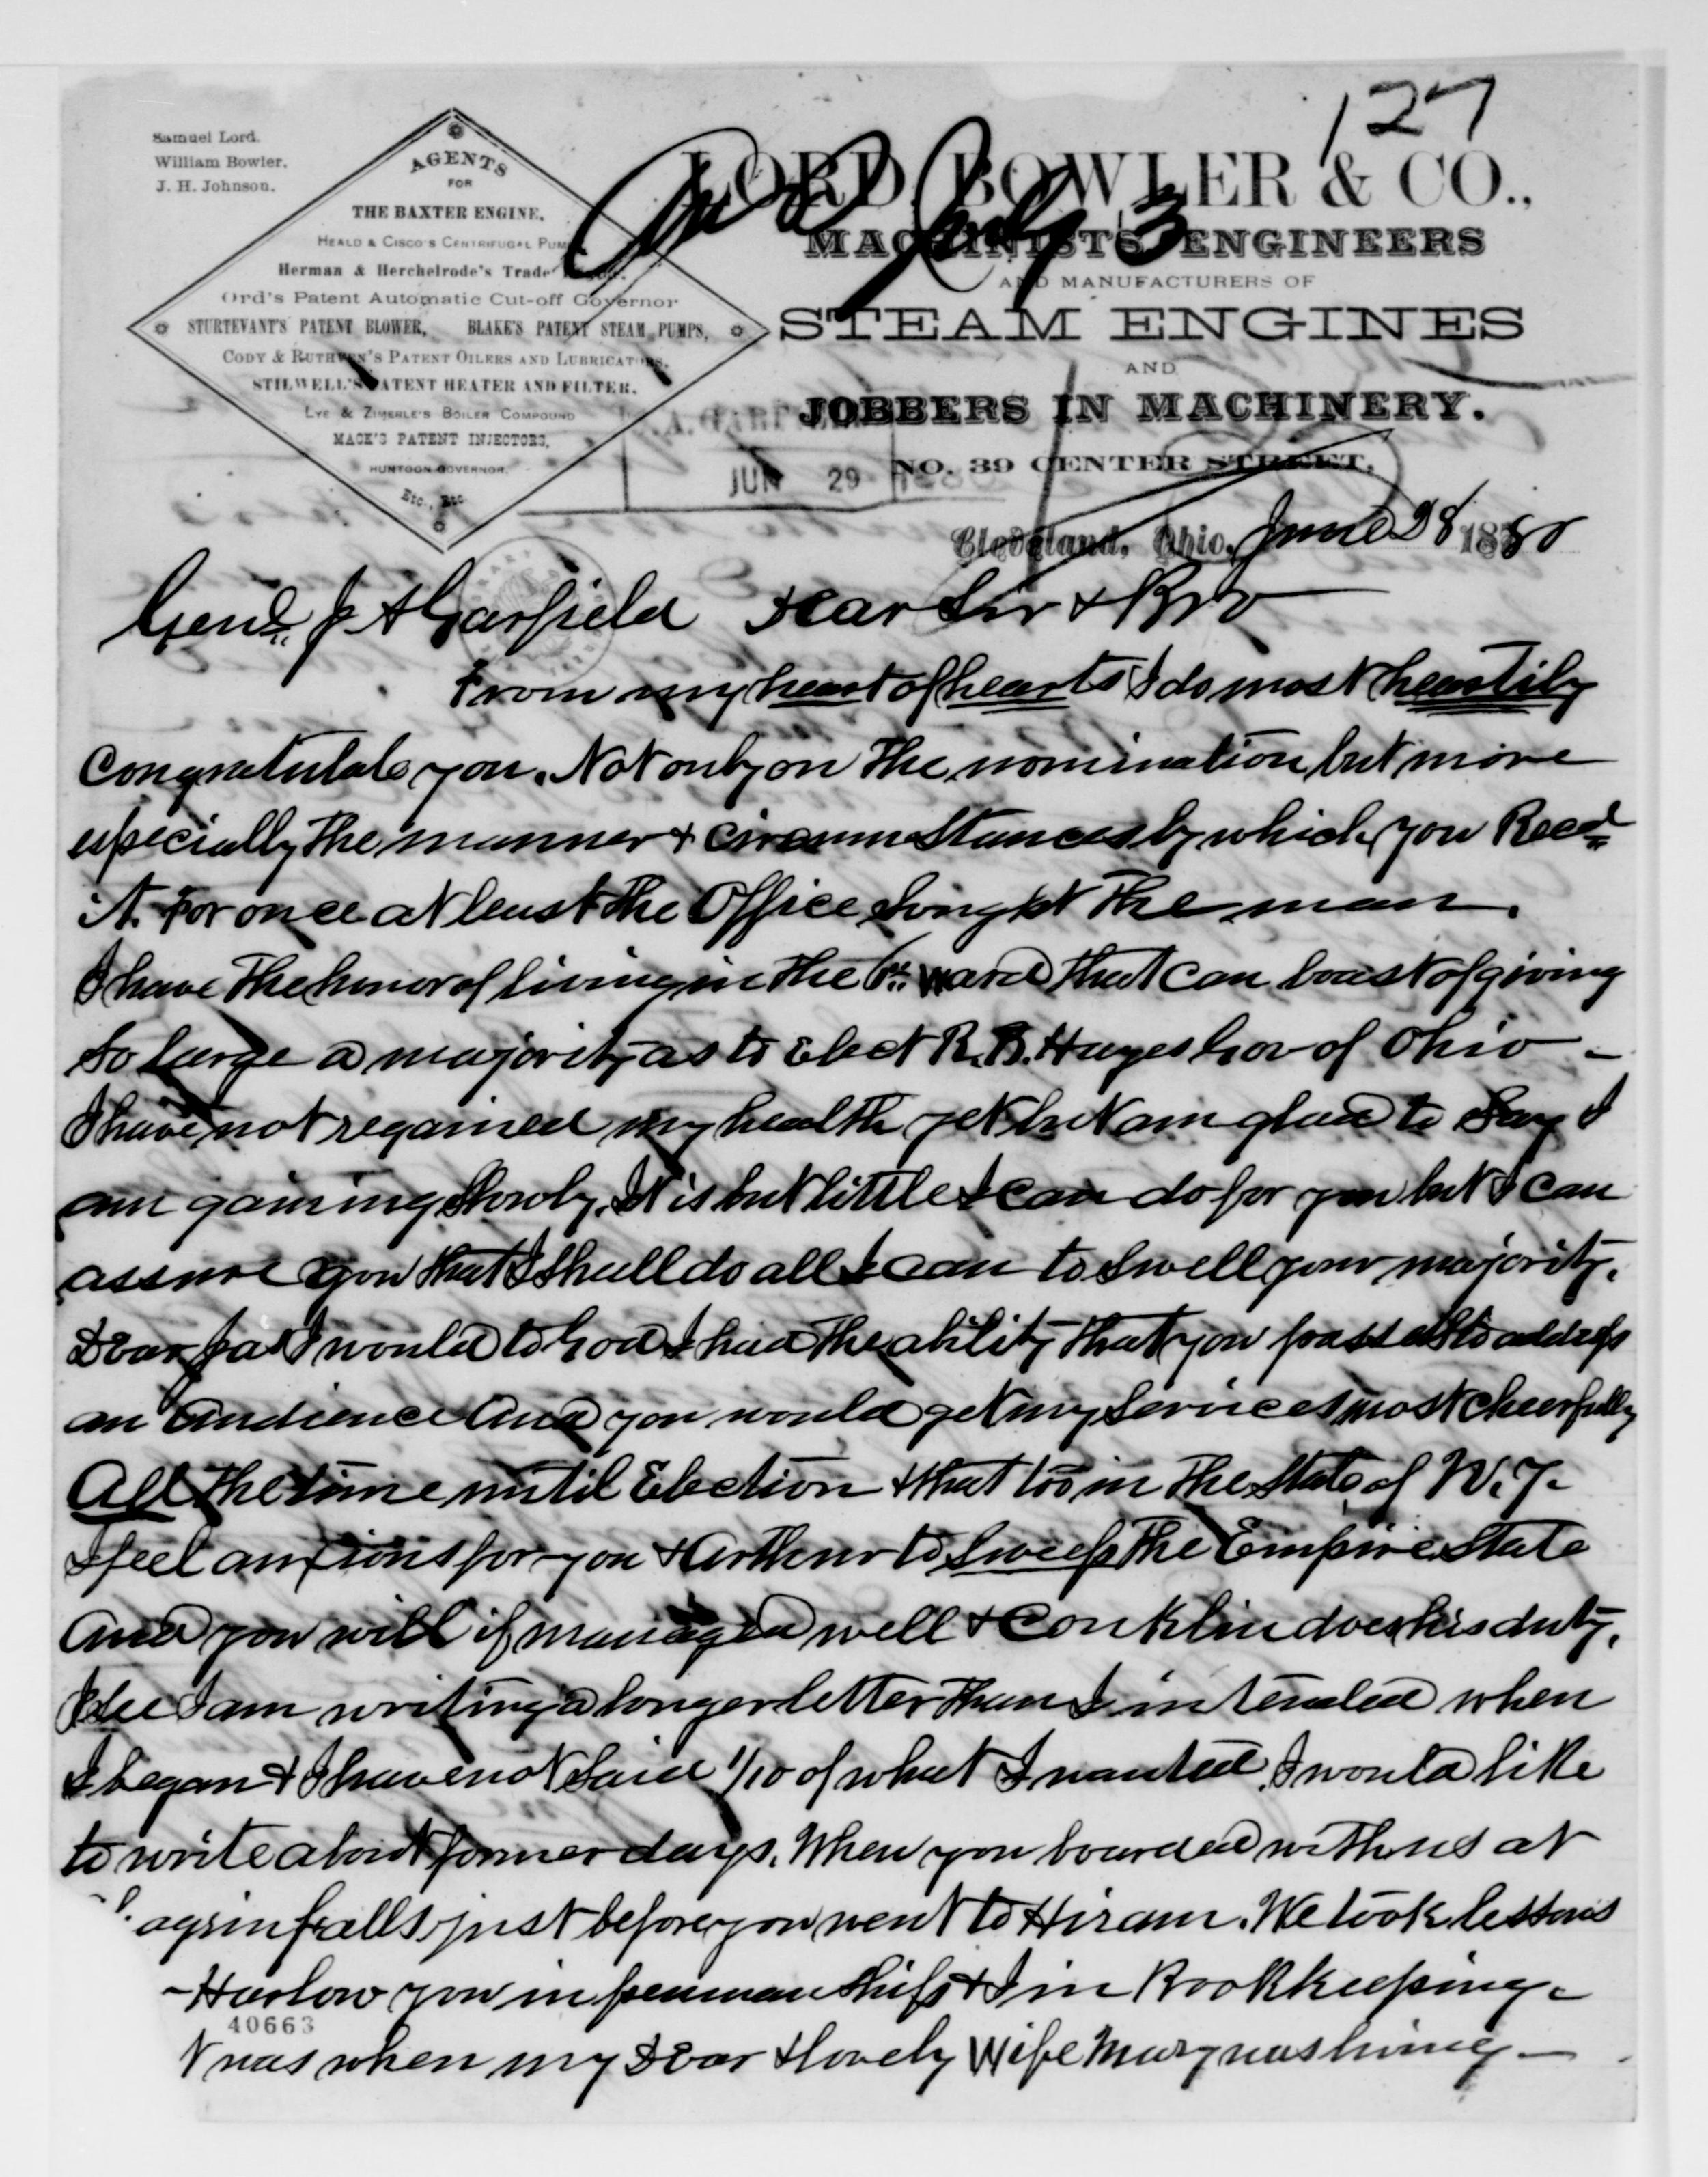 127
Samuel Lord.
William Bowler.
J. H. Johnson.
AGENTS
FOR
THE BAXTER ENGINE,
HEALD & CISCO'S CENTRIFUGAL PUM
Herman & Herchelrode's Trade
Ord's Patent Automatic Cut-off Governor
STURTEVANT'S PATENT BLOWER, BLAKE'S PATENT STEAM PUMPS,
CODY & RUTHVEN'S PATENT OILERS AND LUBRICATORS,
STILWELL'S PATENT HEATER AND FILTER.
LYE & ZIMERLE'S BOILER COMPOUND
MACK'S PATENT INJECTORS,
HUNTOON GOVERNOR,
Etc., Etc.
LORD, BOWLER & CO.,
MACHINISTS, ENGINEERS
AND MANUFACTURERS OF
STEAM ENGINES
AND
JOBBERS IN MACHINERY.
NO. 39 CENTER STREET,
July 3
J.A. GARFIELD
JUN 29 1880
Cleveland, Ohio, June 28 1880
Genl. J A Garfield Dear Sir & Bro
From my heart of hearts I do most heartily
Congratulate you. Not only on the nomination but more
especially the manner & circumstances by which you Recd
it. For once at least the Office Sought the man.
I have the honor of living in the 6th ward that can boast of giving
So large a majority as to Elect R. B. Hayes Gov of Ohio -
I have not regained my health yet but am glad to Say I
am gaining Slowly. It is but little I can do for you but I can
assure you that I Shall do all I can to Swell your majority.
Dear Ja I would to God I had the ability that you possess to address
an Audience And you would get my Services most cheerfully
All the time until Election & that too in the State of N.Y.
I feel anxious for you & Arthur to Sweep the Empire State
And you will if managed well & Conklin does his duty.
I See I am writing a longer letter than I intended when
I began & I have not Said 1/10 of what I wanted. I would like
to write about former days. When you boarded with us at
agrin falls just before you went to Hiram. We took lessons
Harlow you in penmanship & I in Bookkeeping.
40663
t was when my Dear & lovely Wife Mary was living -